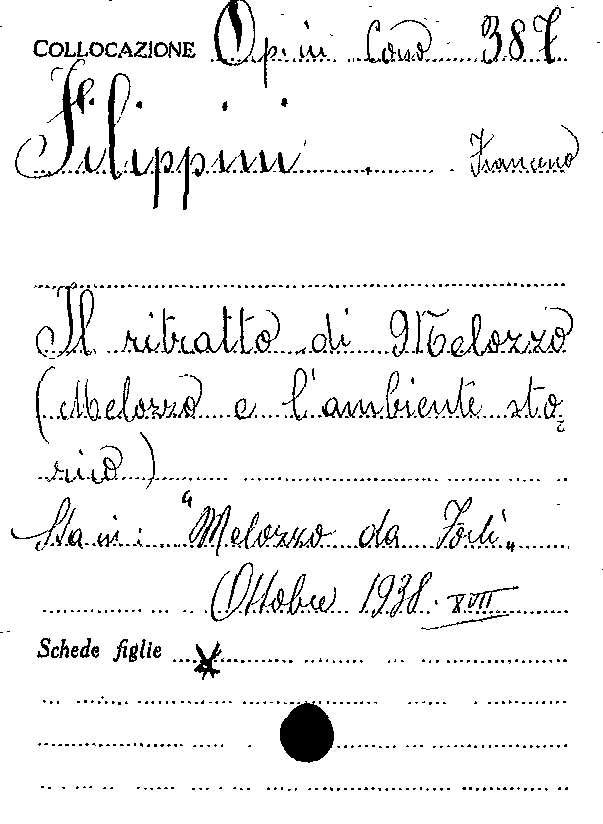 COLLOCAZIONE Op. in Cons 387
Filippini . Francesco
Il ritratto di Melozzo
(Melozzo e l'ambiente sto-
rico)
Sta in: "Melozzo da Forlì"
Ottobre 1938. XVII
Schede figlie